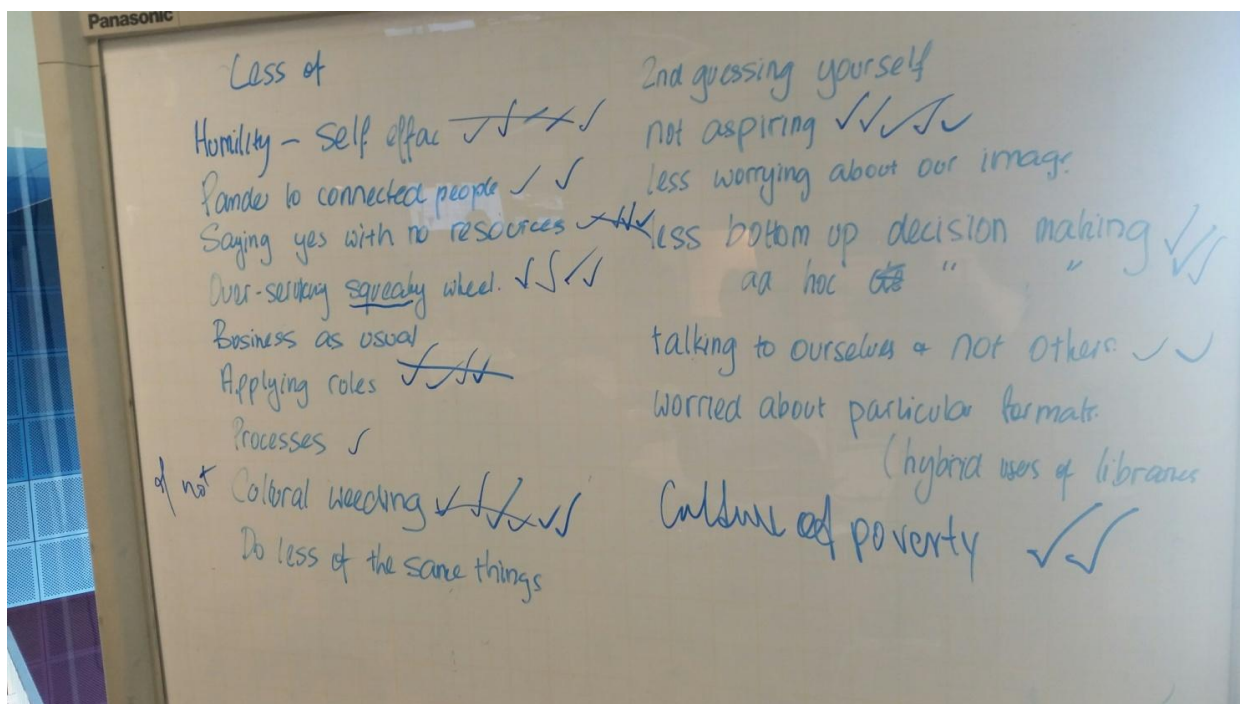 Panasonic
Less of
Humility - Self effac ✓✓✓✓✓
Pander to connected people ✓✓
Saying yes with no resources ✓✓✓✓
Over-serving squeaky wheel. ✓✓✓✓
Business as usual
Applying rules ✓✓✓✓
Processes ✓
of not Cultural weeding ✓✓✓✓✓✓
Do less of the same things
2nd guessing yourself
not aspiring ✓✓✓✓✓
less worrying about our image
less bottom up decision making ✓✓✓
ad hoc " "
talking to ourselves & not others. ✓✓
worried about particular formats.
(hybrid users of libraries
Culture of poverty ✓✓